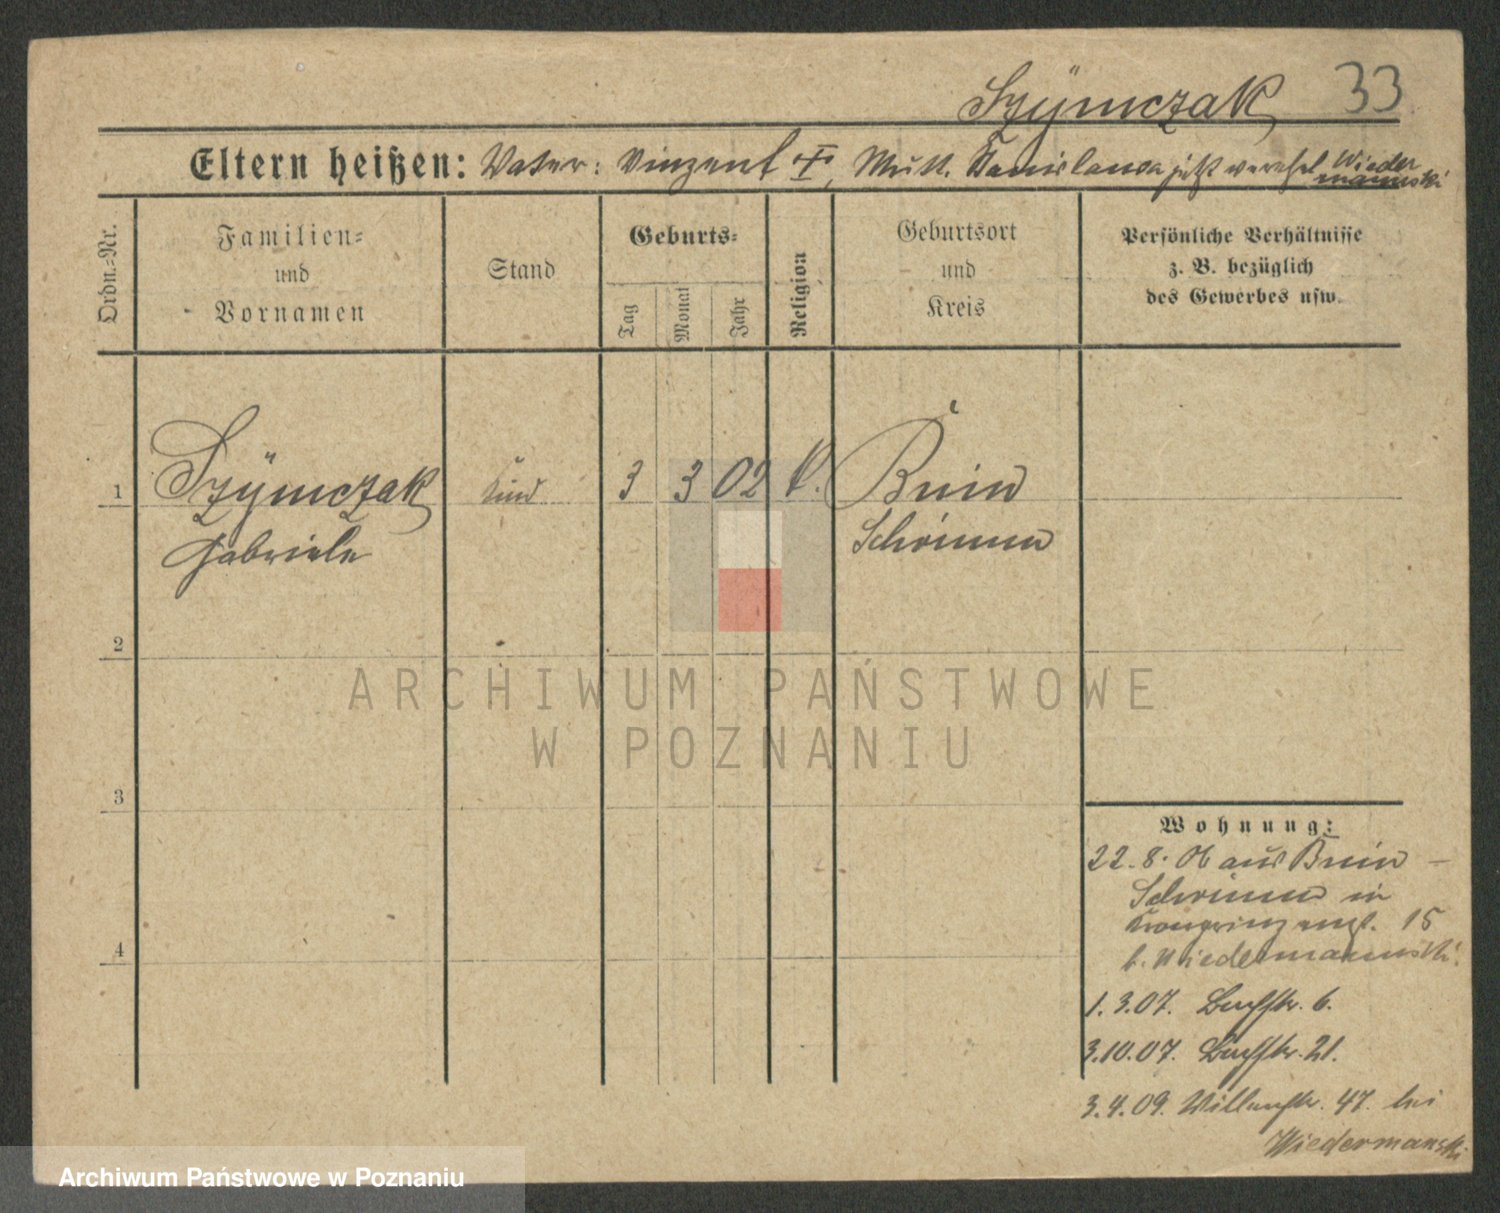 Szymczak 33
Eltern heißen: Vater: Vinzent †, Mutt. Stanislawa jetzt vereh. Wieder
mannski
Ordn.-Nr.
Familien-
und
Vornamen
Stand
Geburts-
Tag
Monat
Jahr
Religion
Geburtsort
und
Kreis
Persönliche Verhältnisse
z. B. bezüglich
des Gewerbes usw.
1 Szymczak Kind 3 3 02 k. Bnin
Gabriele Schrimm
2
3
4
Wohnung:
22.8.06 aus Bnin –
Schrimm in
Kronprinzenst. 15
b. Wiedermannski.
1.3.07. 6.
3.10.07. 21.
3.4.09. 47. bei
Wiedermanski
ARCHIWUM PAŃSTWOWE
W POZNANIU
Archiwum Państwowe w Poznaniu